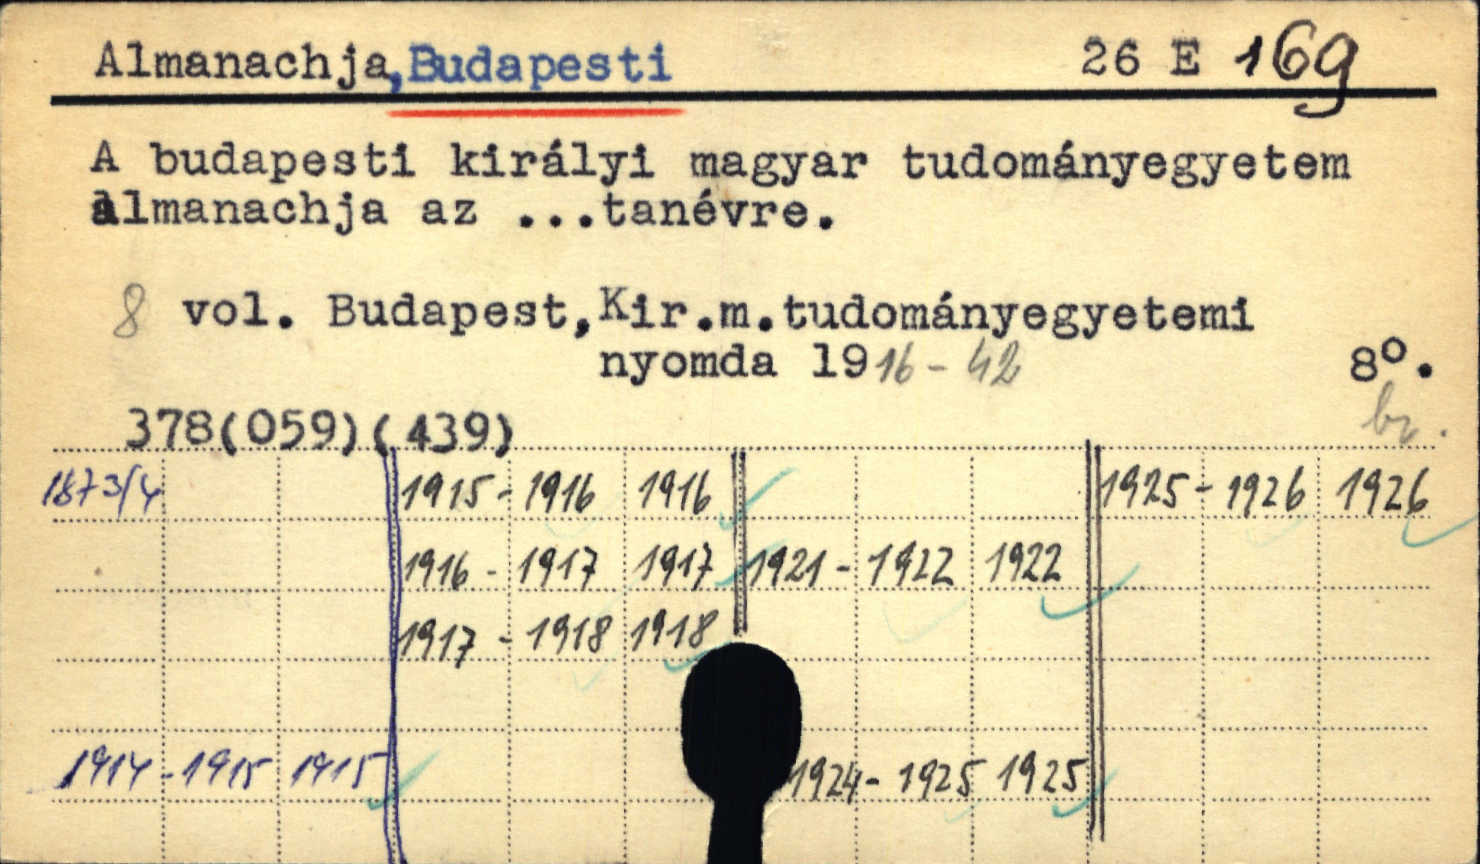 Almanachja,Budapesti 26 E 169
A budapesti királyi magyar tudományegyetem
almanachja az ...tanévre.
8 vol. Budapest,Kir.m.tudományegyetemi
nyomda 1916-42 8°.
br.
378(059)(439)
1873/4 1915-1916 1916 1925-1926 1926
1916-1917 1917 1921-1922 1922
1917-1918 1918
1914-1915 1915 1924-1925 1925